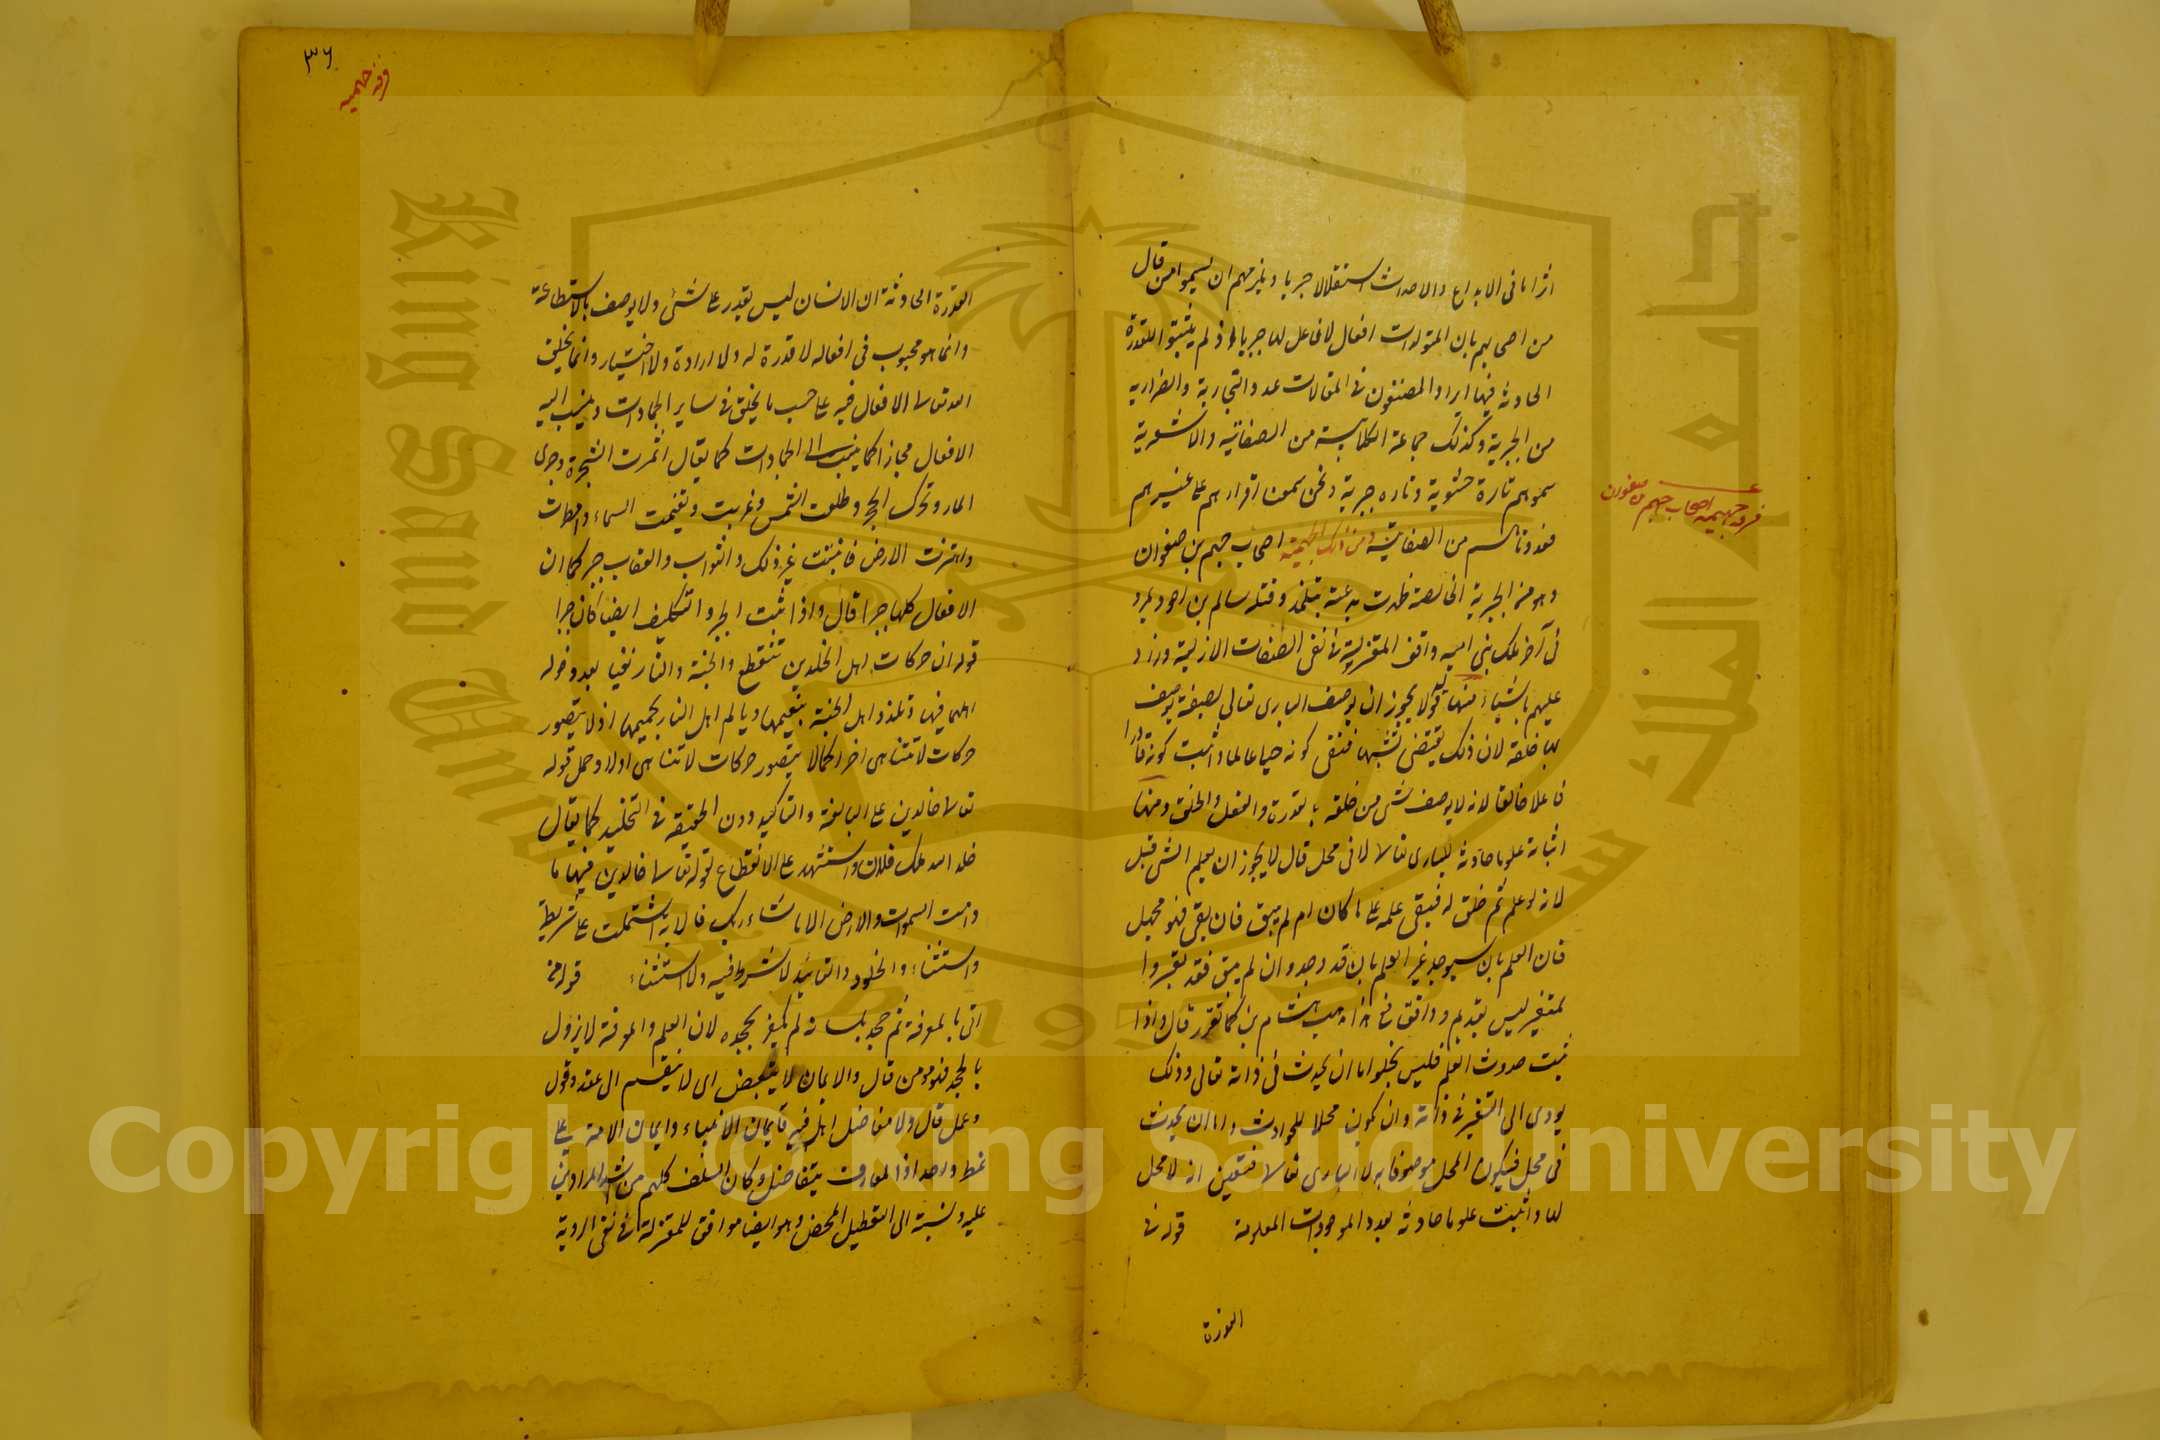 اثرا ما فى الابداع والاحداث استقلالا جبريا ويلزمهم ان يسموا من قال
من اصحابهم بان المتولدات افعال لا فاعل لها جبريا اذ لم يثبتوا للقدرة
الحادثة فيها اثرا والمصنفون فى المقالات عدوا النجارية والضرارية
من الجبرية وكذلك جماعة الكلابية من الصفاتية والاشعرية
سموهم تارة حشوية وتاره جبرية ونحن سمعنا اقرارهم على
فعددناهم من الصفاتية ومن ذلك الجهمية اصحاب جهم بن صفوان
وهو من الجبرية الخالصة ظهرت بدعته بترمذ وقتله سالم بن احوز بمرو
فى آخر ملك بنى اميه وافق المعتزلة فى نفى الصفات الازلية وزاد
عليهم باشياء منها قوله لا يجوز ان يوصف البارى تعالى بصفة يوصف
بها خلقه لان ذلك يقتضى تشبها فنفى كونه حيا عالما واثبت كونه قادرا
فاعلا خالقا لانه لا يوصف شى من خلقه بالقدرة والفعل والخلق ومنها
اثباته علوما حادثة للبارى تعالى لا فى محل قال لا يجوز ان يعلم الشى قبل
لانه لو علم ثم خلق له فبقى علمه على ما كان ام لم يبق فان بقى فهو جهل
فان العلم بان سيوجد غير العلم بان قد وجد وان لم يبق فقد تغير وا
لمتغير ليس بقديم ووافق فى هذا مذهب هشام بن كما تقرر قال واذا
ثبت حدوث العلم فليس يخلوا اما ان يحدث فى ذاته تعالى وذلك
يودى الى التغير فى ذاته وان يكون محلا للحوادث واما ان يحدث
فى محل فيكون المحل موصوفا به لا البارى تعالى فتعين انه لا محل
لها واثبت علوما حادثة بعدد الموجودات المعلومة قوله فى
القدرة
فرقه جهيميه اصحاب جهم بن صفوان
٣٦
فرقه جهميه
القدرة الحادثة ان الانسان ليس يقدر على شئ ولا يوصف بالاستطاعة
وانما هو مجبور فى افعاله لا قدرة له ولا ارادة ولا اختيار وانما يخلق
الله تعالى الافعال فيه على حسب ما يخلق فى ساير الجمادات وينسب اليه
الافعال مجازا كما ينسب الى الجمادات كما يقال اثمرت الشجرة وجرى
الماء وتحرك الحجر وطلعت الشمس وغربت وتغيمت السماء وامطرت
واهتزت الارض فانبتت غير ذلك والثواب والعقاب جبر كما ان
الافعال كلها جبرا قال واذا ثبت الجبر والتكليف ايضا كان جبرا
قوله ان حركات اهل الخلدين تنقطع والجنة والنار تفنيا بعد دخوله
اهلهما فيها وتلذذ اهل الجنة بنعيمها ويالم اهل النار بحميمها اذ لا يتصور
حركات لا تتناهى اخرا كما لا يتصور حركات لا تتناهى اولا وحمل قوله
تعالى خالدين على المبالغة والتاكيد دون الحقيقة فى التخليد كما يقال
خلد الله ملك فلان واستشهد على الانقطاع قوله تعالى خالدين فيها ما
دامت السموات والارض الا ما شاء ربك فالاية اشتملت على شريطة
واستثناء والخلود والتابيد لا شرط فيه ولا استثناء قوله من
اتى بالمعرفة ثم جحد بلسانه لم يكفر بجحده لان العلم والمعرفة لا يزول
بالجحد فهو مومن قال والايمان لا يتبعض اى لا ينقسم الى عقد وقول
وعمل قال ولا يتفاضل اهله فيه فايمان الانبياء وايمان الامة على
نمط واحد اذ المعارف لا يتفاضل وكان السلف كلهم من اشد الرادين
عليه ونسبته الى التعطيل المحض وهو ايضا موافق للمعتزلة فى نفى الروية